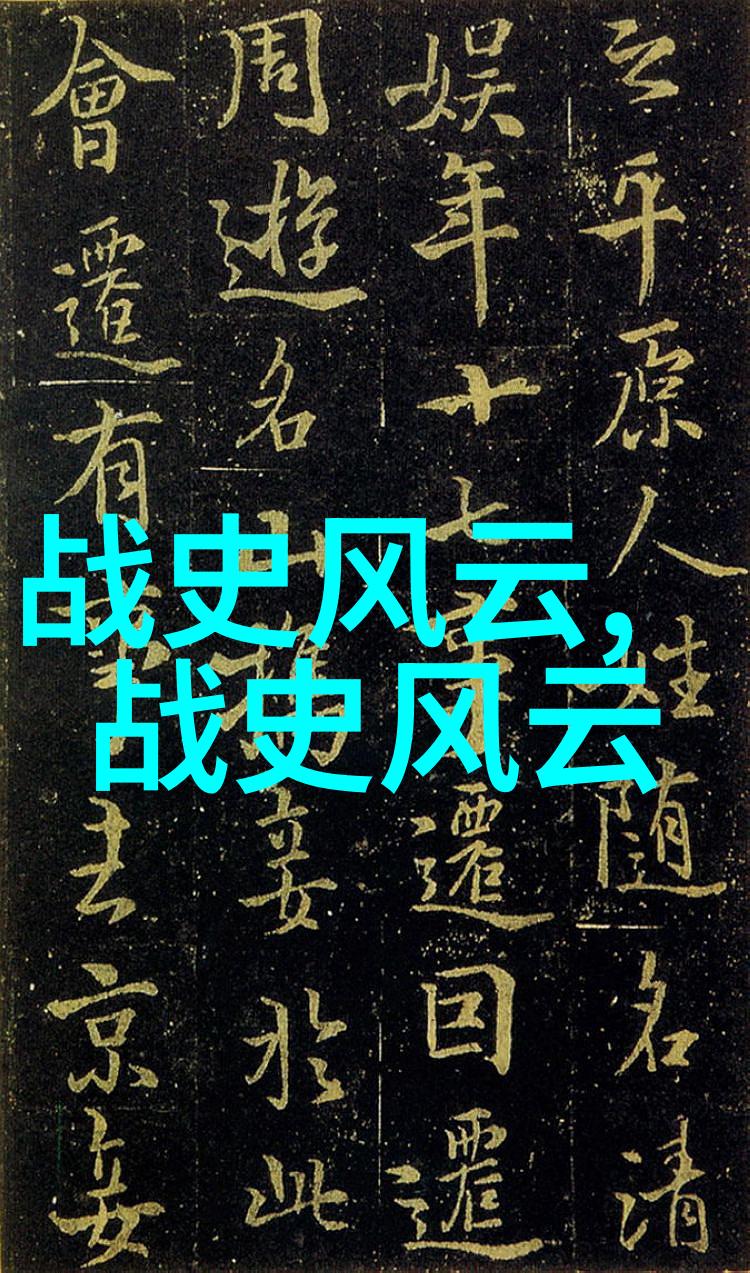 战史风云,
战史风云
之平原人姓随名清
娱年十七遷回遷
周遊名山携妾於此
會遷有京妾